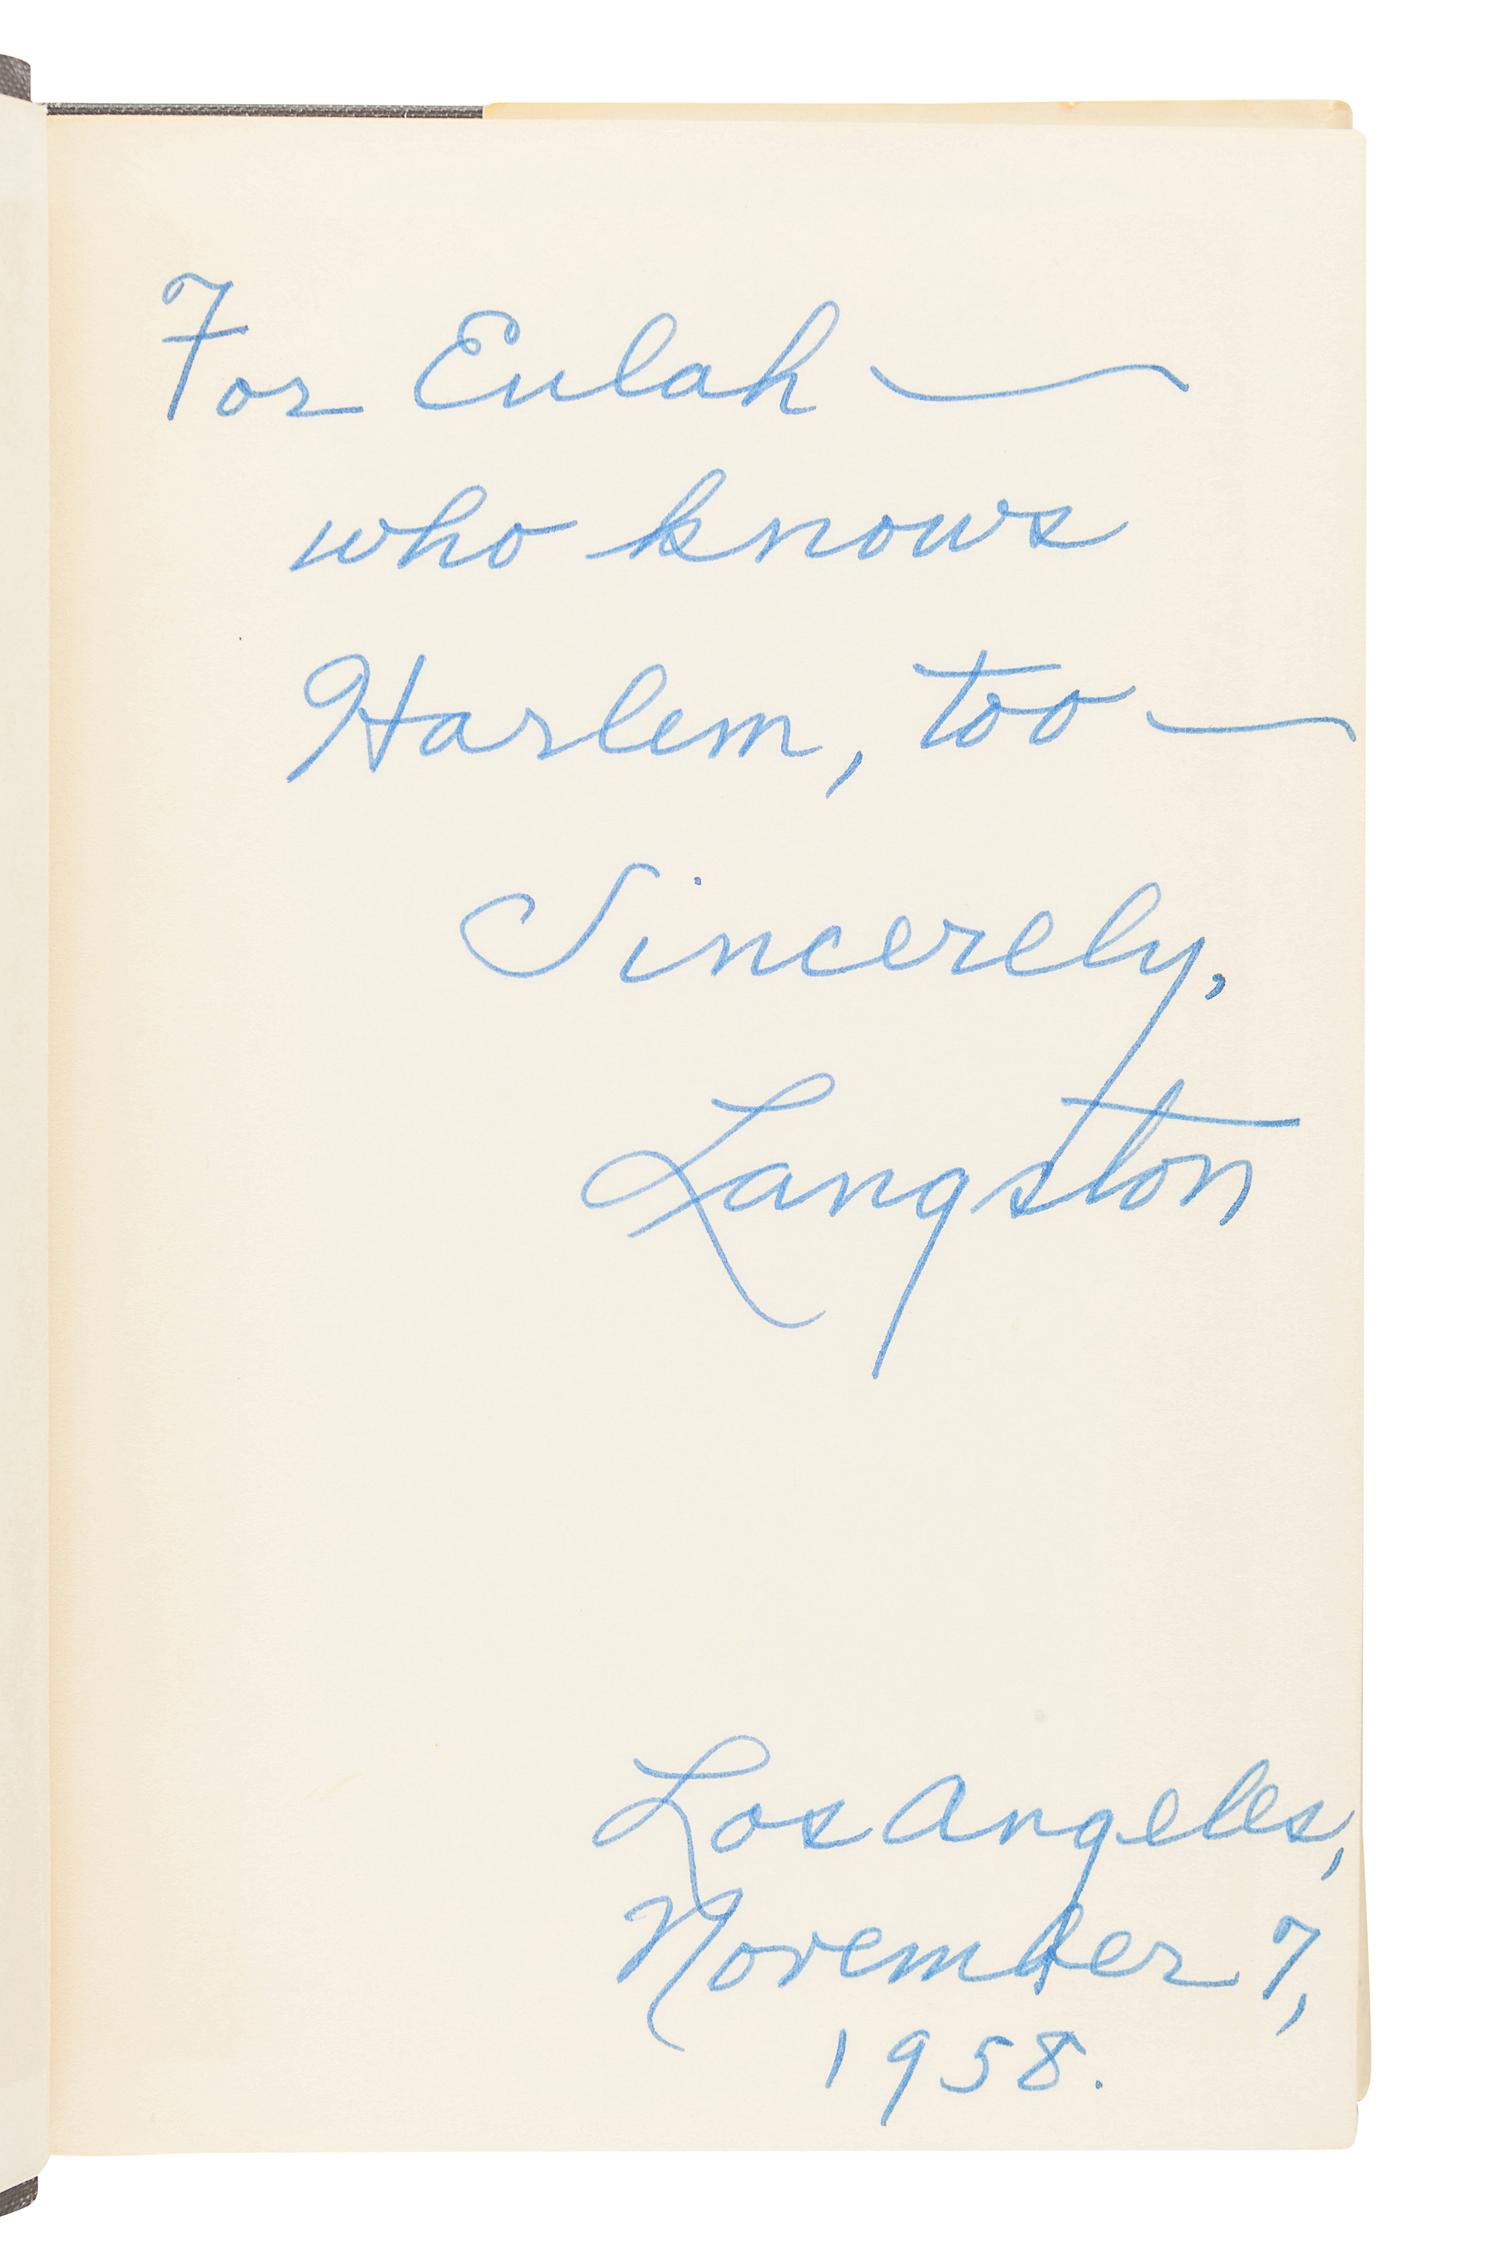 For Eulah —
who knows
Harlem, too —
Sincerely,
Langston
Los Angeles,
November 7,
1958.